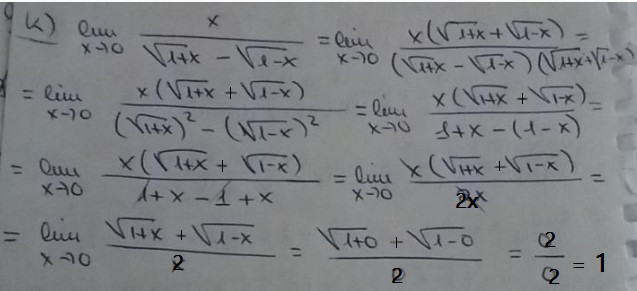 k) lim x→0 x / (√1+x − √1−x) = lim x→0 x(√1+x + √1−x) / (√1+x − √1−x)(√1+x + √1−x) =
= lim x→0 x(√1+x + √1−x) / (√1+x)² − (√1−x)² = lim x→0 x(√1+x + √1−x) / 1+x − (1−x) =
= lim x→0 x(√1+x + √1−x) / 1+x − 1 + x = lim x→0 x(√1+x + √1−x) / 2x =
= lim x→0 √1+x + √1−x / 2 = √1+0 + √1−0 / 2 = 2 / 2 = 1